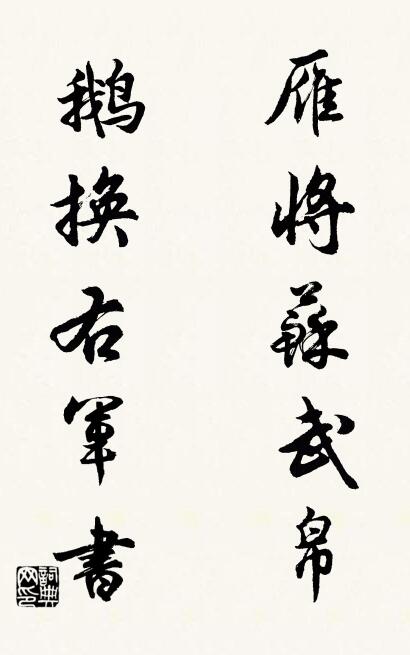 雁將蘇武帛
鵝換右軍書
詞典网印